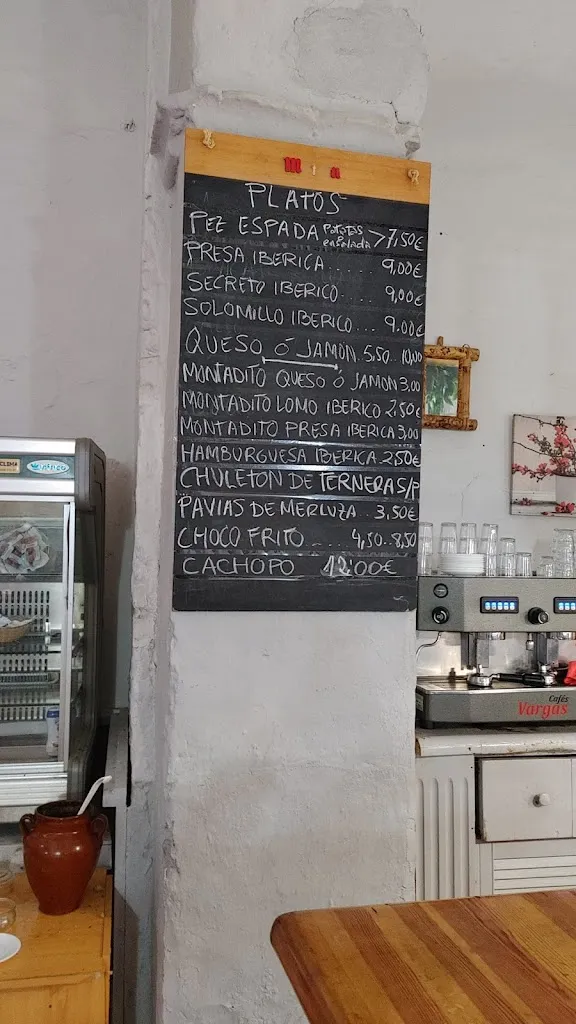 m i n
PLATOS
PEZ ESPADA patatas o ensalada > 7,50€
PRESA IBERICA .... 9,00€
SECRETO IBERICO.... 9,00€
SOLOMILLO IBERICO... 9.00€
QUESO Ó JAMON. 5,50. 10,00
MONTADITO QUESO Ó JAMON 3,00
MONTADITO LOMO IBERICO 2,50€
MONTADITO PRESA IBERICA 3,00
HAMBURGUESA IBERICA 2,50€
CHULETON DE TERNERA S/P
PAVIAS DE MERLUZA . 3,50€
CHOCO FRITO .... 4,50.. 8,50
CACHOPO 12'00€
Cafés
Vargas